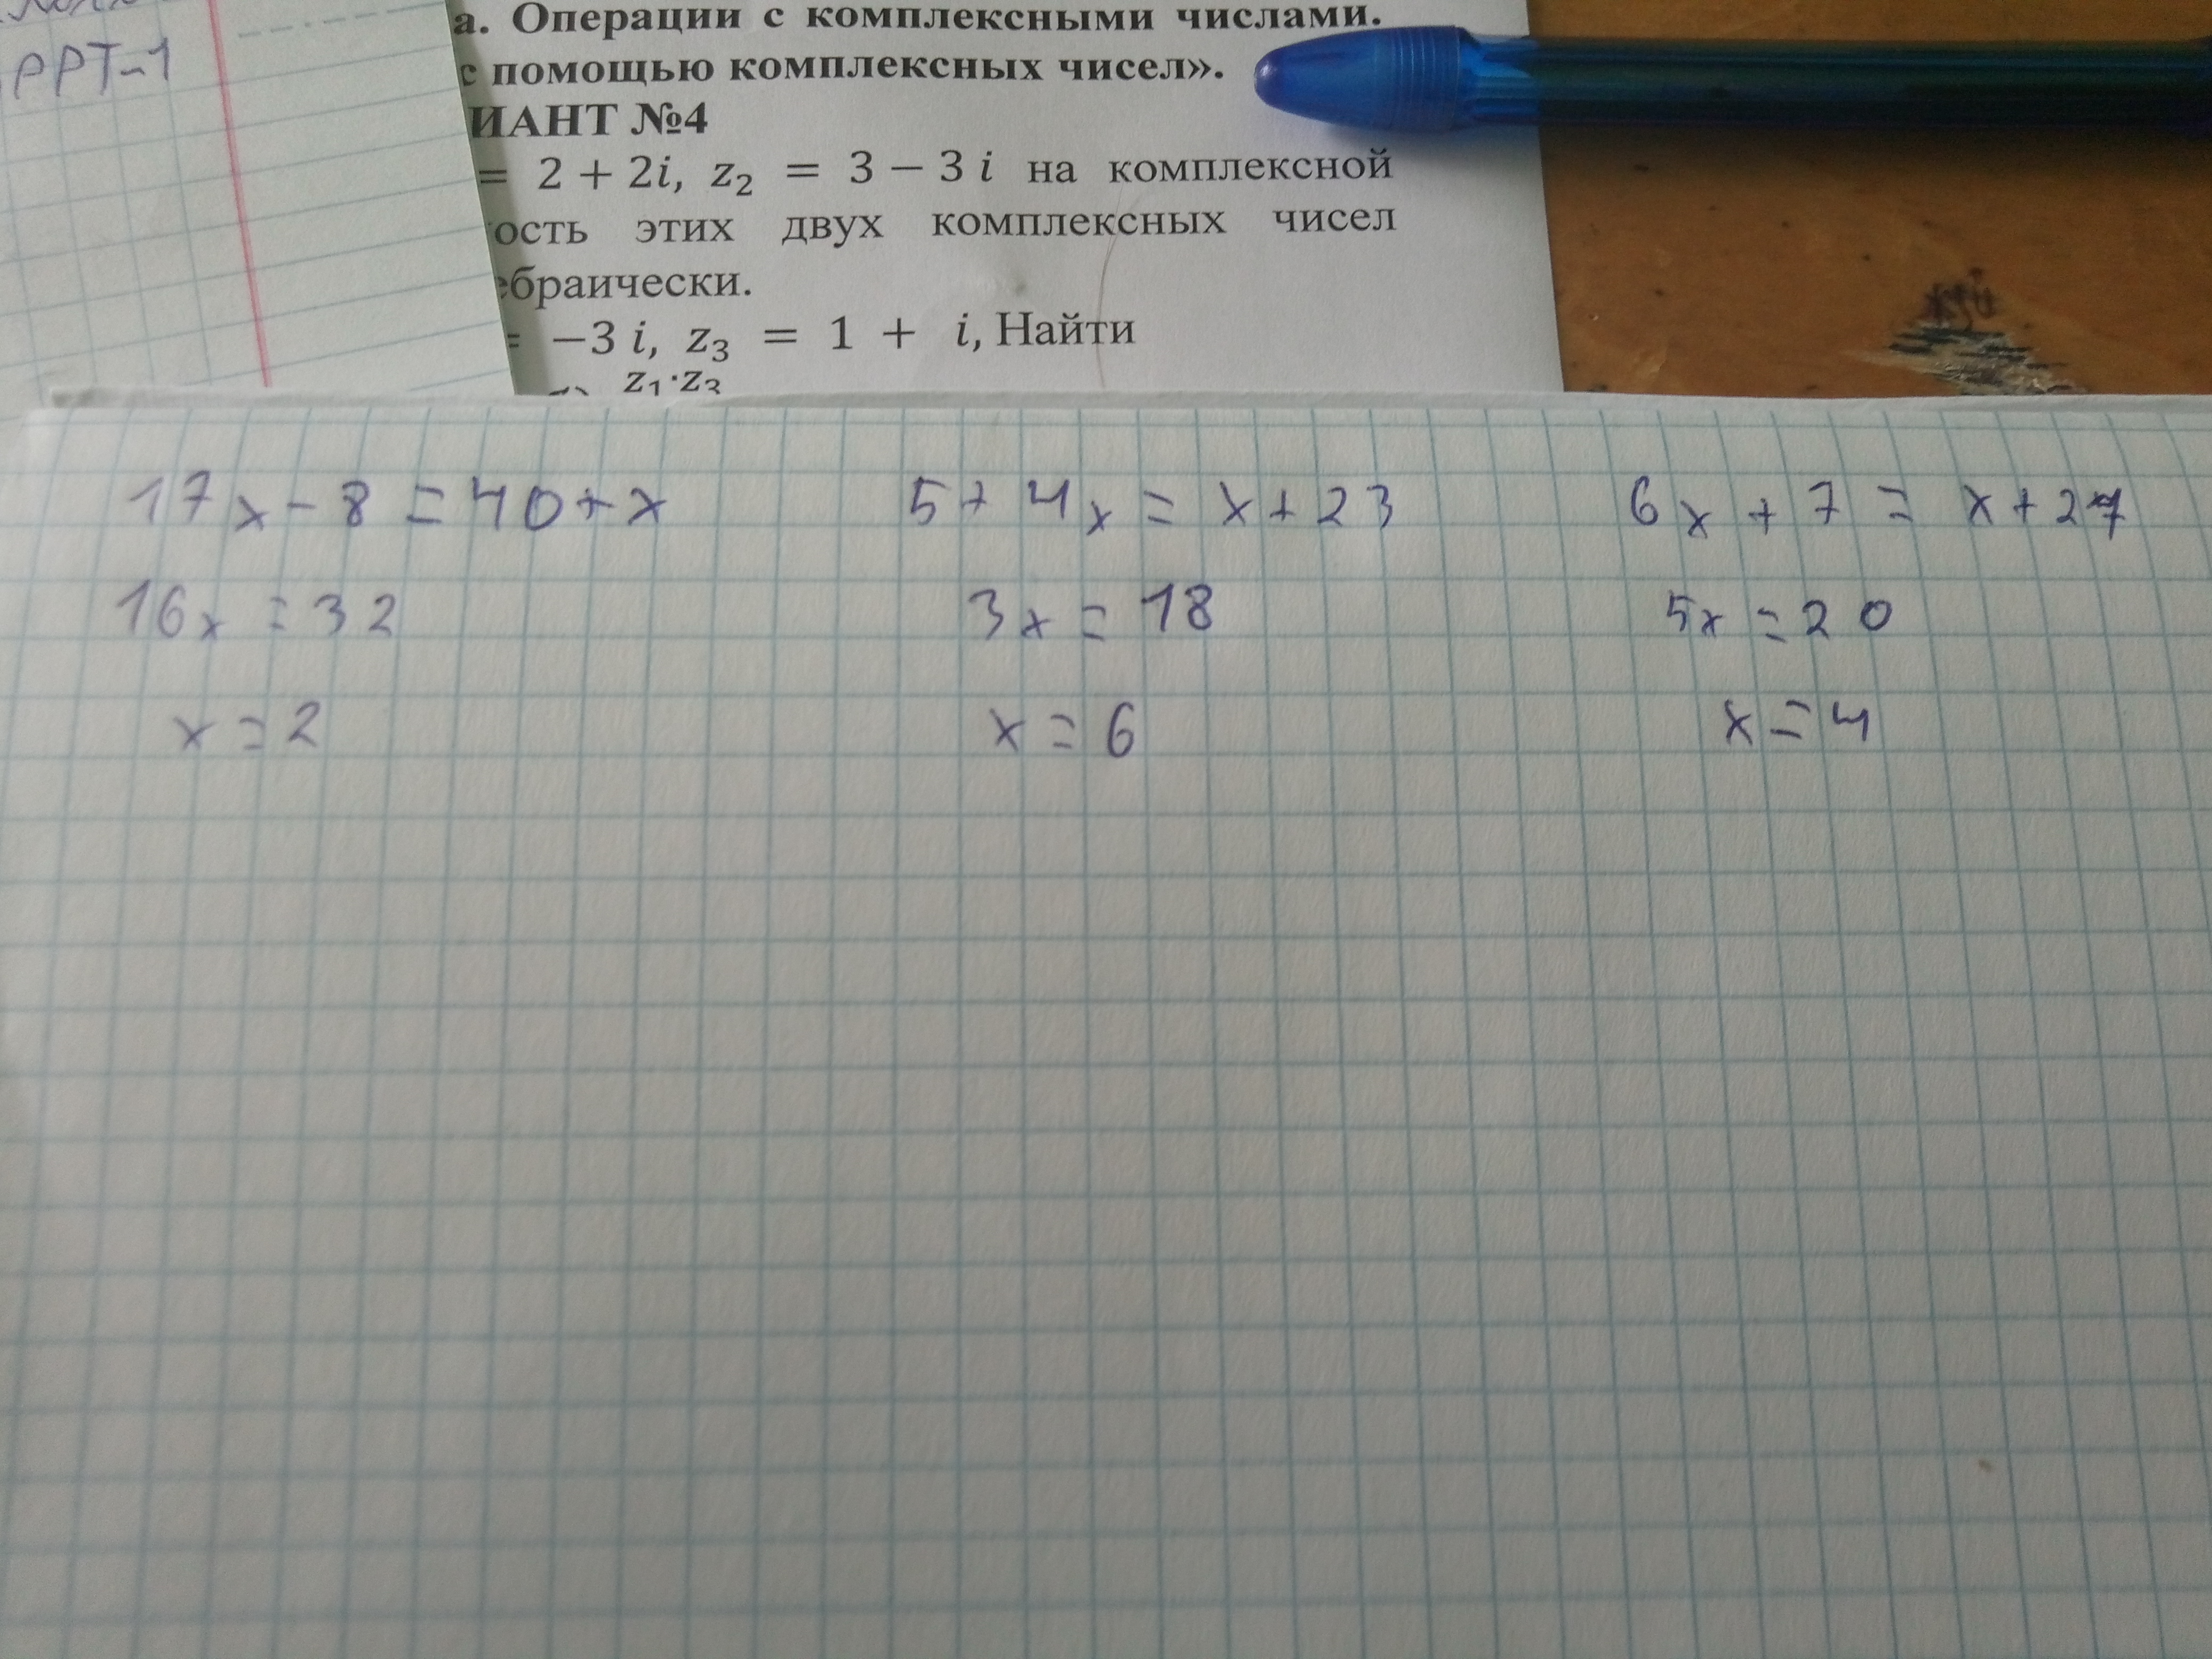 РРТ-1
а. Операции с комплексными числами.
с помощью комплексных чисел».
ИАНТ №4
= 2 + 2i, z₂ = 3 − 3 i на комплексной
ость этих двух комплексных чисел
ебраически.
= −3 i, z₃ = 1 + i, Найти
z₁·z₃
17x - 8 = 40 + x
16x = 32
x = 2
5 + 4x = x + 23
3x = 18
x = 6
6x + 7 = x + 27
5x = 20
x = 4